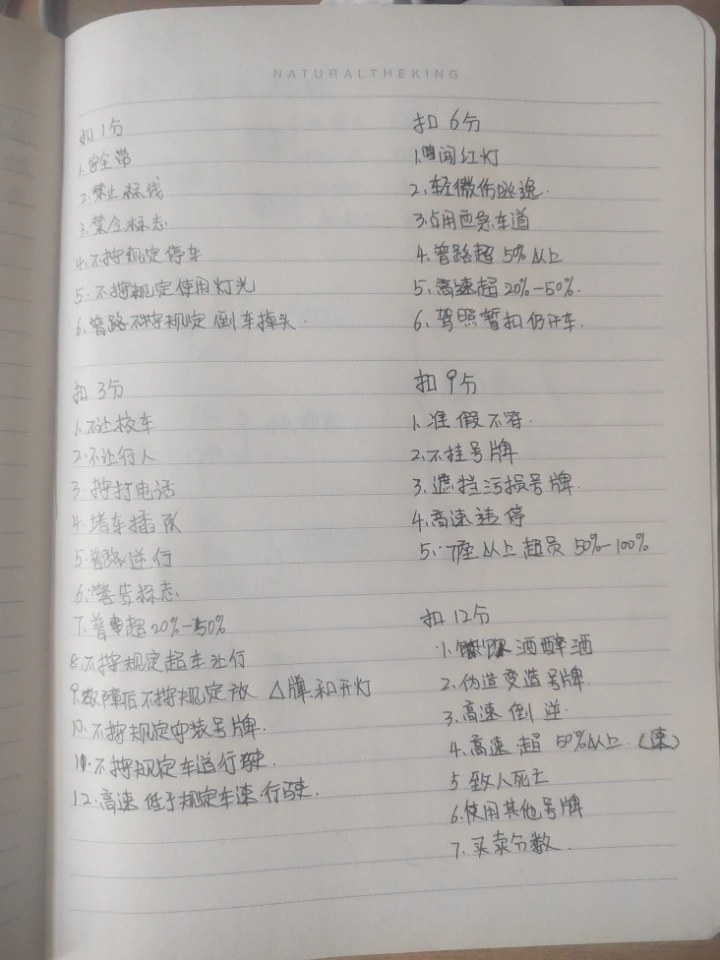 NATURALTHEKING
扣1分
1.安全带
2.禁止标线
3.禁令标志
4.不按规定停车
5.不按规定使用灯光
6.普路不按规定倒车掉头.
扣3分
1.不让校车
2.不让行人
3.拨打电话
4.堵车插队
5.普路逆行
6.警告标志
7.普车超20%-50%
8.不按规定超车让行
9.故障后不按规定放△牌和开灯
10.不按规定安装号牌.
11.不按规定车道行驶.
12.高速低于规定车速行驶.
扣6分
1.闯红灯
2.轻微伤逃逸.
3.占用应急车道
4.普路超50%以上
5.高速超20%-50%.
6.驾照暂扣仍开车.
扣9分
1.准假不符.
2.不挂号牌
3.遮挡污损号牌.
4.高速违停
5.7座以上超员50%-100%
扣12分
1.酒醉酒
2.伪造变造号牌.
3.高速倒逆.
4.高速超50%以上.(速)
5.致人死亡
6.使用其他号牌
7.买卖分数.